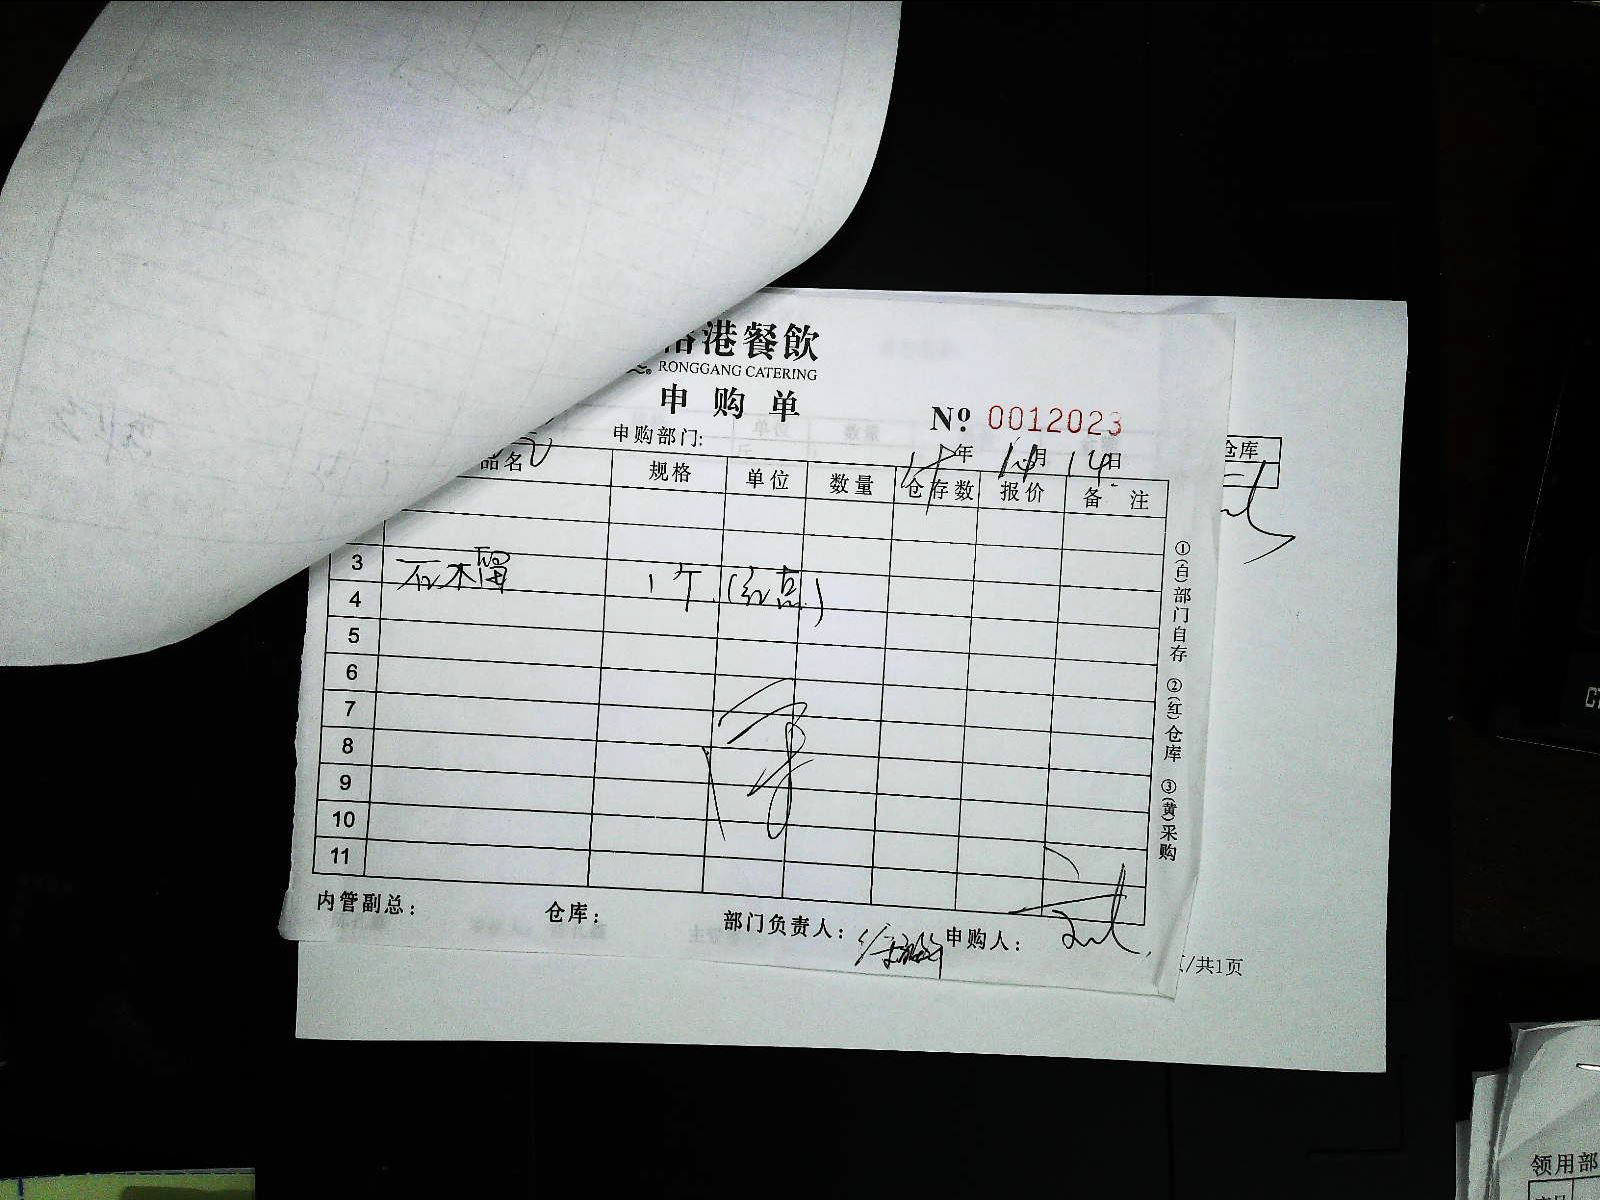 港餐飲
RONGGANG CATERING
申购单
№ 0012023
申购部门: 年 月 14日
品名 规格 单位 数量 仓存数 报价 备注
3 石榴 1个 (红点)
4
5
6
7
8
9
10
11
内管副总: 仓库: 部门负责人: 申购人:
①(白)部门自存 ②(红)仓库 ③(黄)采购
仓库
/共1页
领用部